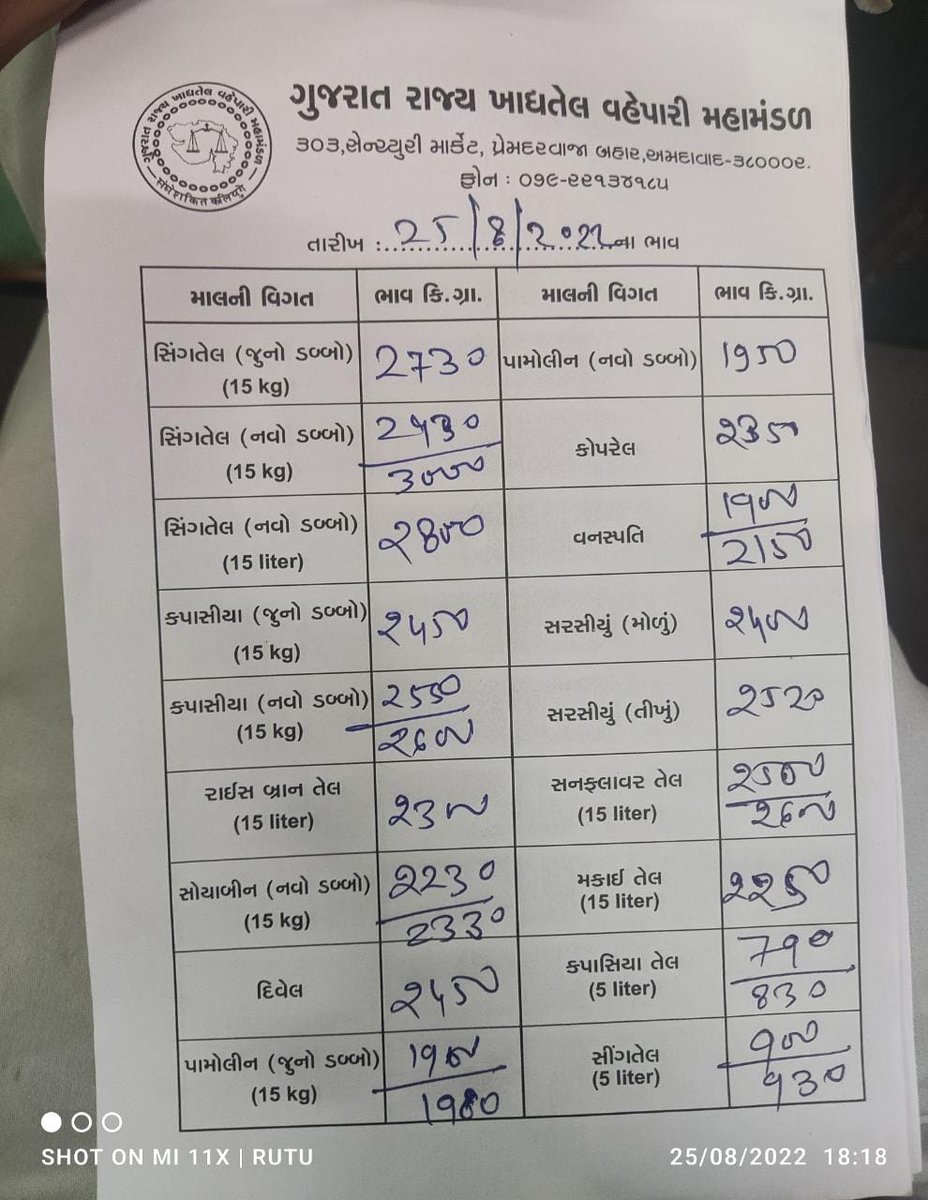 ગુજરાત રાજ્ય ખાદ્યતેલ વહેપારી મહામંડળ
ગુજરાત રાજ્ય ખાદ્યતેલ વહેપારી મહામંડળ
સંઘેશક્તિ કલિયુગે
૩૦૩,સેન્ચ્યુરી માર્કેટ, પ્રેમદરવાજા બહાર,અમદાવાદ-૩૮૦૦૦૨.
ફોન : ૦૭૯-૨૨૧૩૪૧૮૫
તારીખ : 25/8/2022 ના ભાવ
માલની વિગત ભાવ કિ.ગ્રા. માલની વિગત ભાવ કિ.ગ્રા.
સિંગતેલ (જુનો ડબ્બો) 2730 પામોલીન (નવો ડબ્બો) 1950
(15 kg)
સિંગતેલ (નવો ડબ્બો)
(15 kg) 3000
કોપરેલ ૨350
સિંગતેલ (નવો ડબ્બો) ૨800
(15 liter)
વનસ્પતિ 1900
2150
કપાસીયા (જુનો ડબ્બો)
(15 kg)
સરસીયું (મોળું)
કપાસીયા (નવો ડબ્બો) 2550
(15 kg) 2600
સરસીયું (તીખું) ૨520
રાઈસ બ્રાન તેલ ૨300
(15 liter)
સનફ્લાવર તેલ ૨500
(15 liter) ૨600
સોયાબીન (નવો ડબ્બો) 2230
(15 kg) 2330
મકાઈ તેલ ૨250
(15 liter)
દિવેલ
કપાસિયા તેલ 790
(5 liter) 830
પામોલીન (જુનો ડબ્બો) 1900
(15 kg) 1980
સીંગતેલ 900
(5 liter) 930
SHOT ON MI 11X | RUTU
25/08/2022 18:18